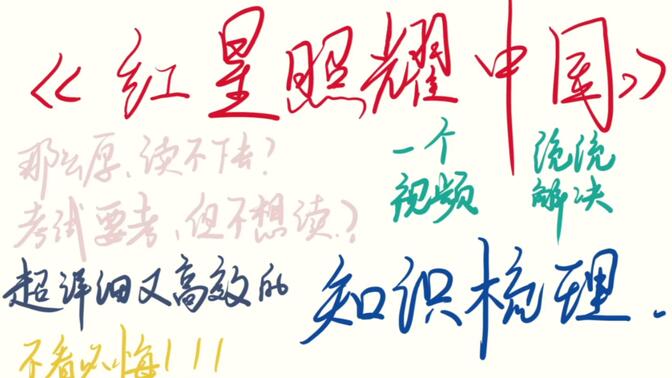 《红星照耀中国》
那么厚、读不下去?
考试要考、但不想读?
一个
视频
统统
解决
超详细又高效的
知识梳理.
不看必悔!!!